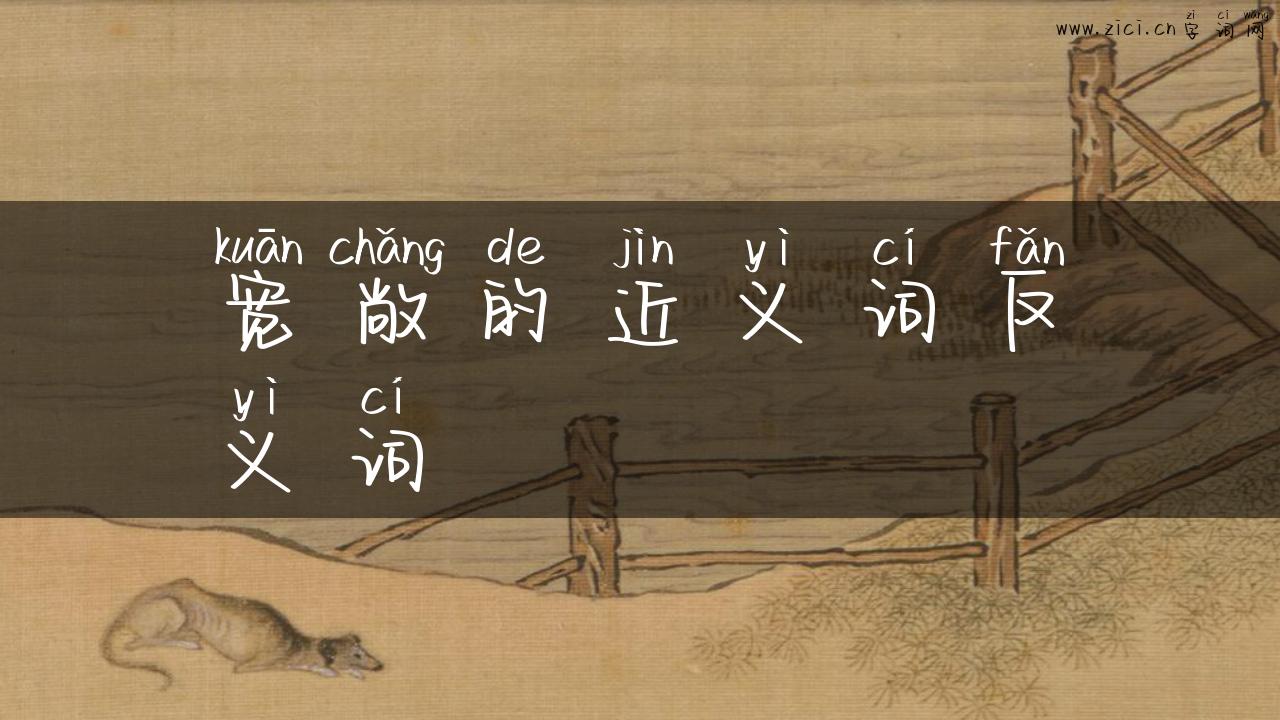 zì cí wǎng
www.zici.cn 字词网
kuān chǎng de jìn yì cí fǎn
宽敞的近义词反
yì cí
义词